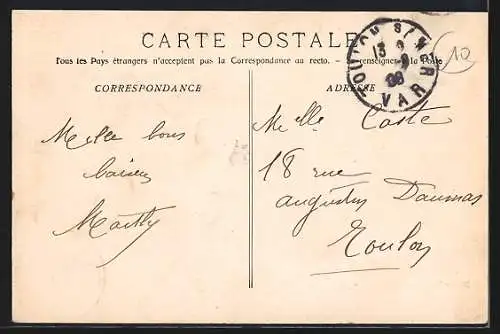 CARTE POSTALE
Tous les Pays étrangers n'acceptent pas la Correspondance au recto. - Se renseigner à la Poste
CORRESPONDANCE
ADRESSE
TOULON S MER
13
08
VAR
10
Mille bons
baisers
Mailly
Melle Coste
18 rue
augustin Daumas
Toulon